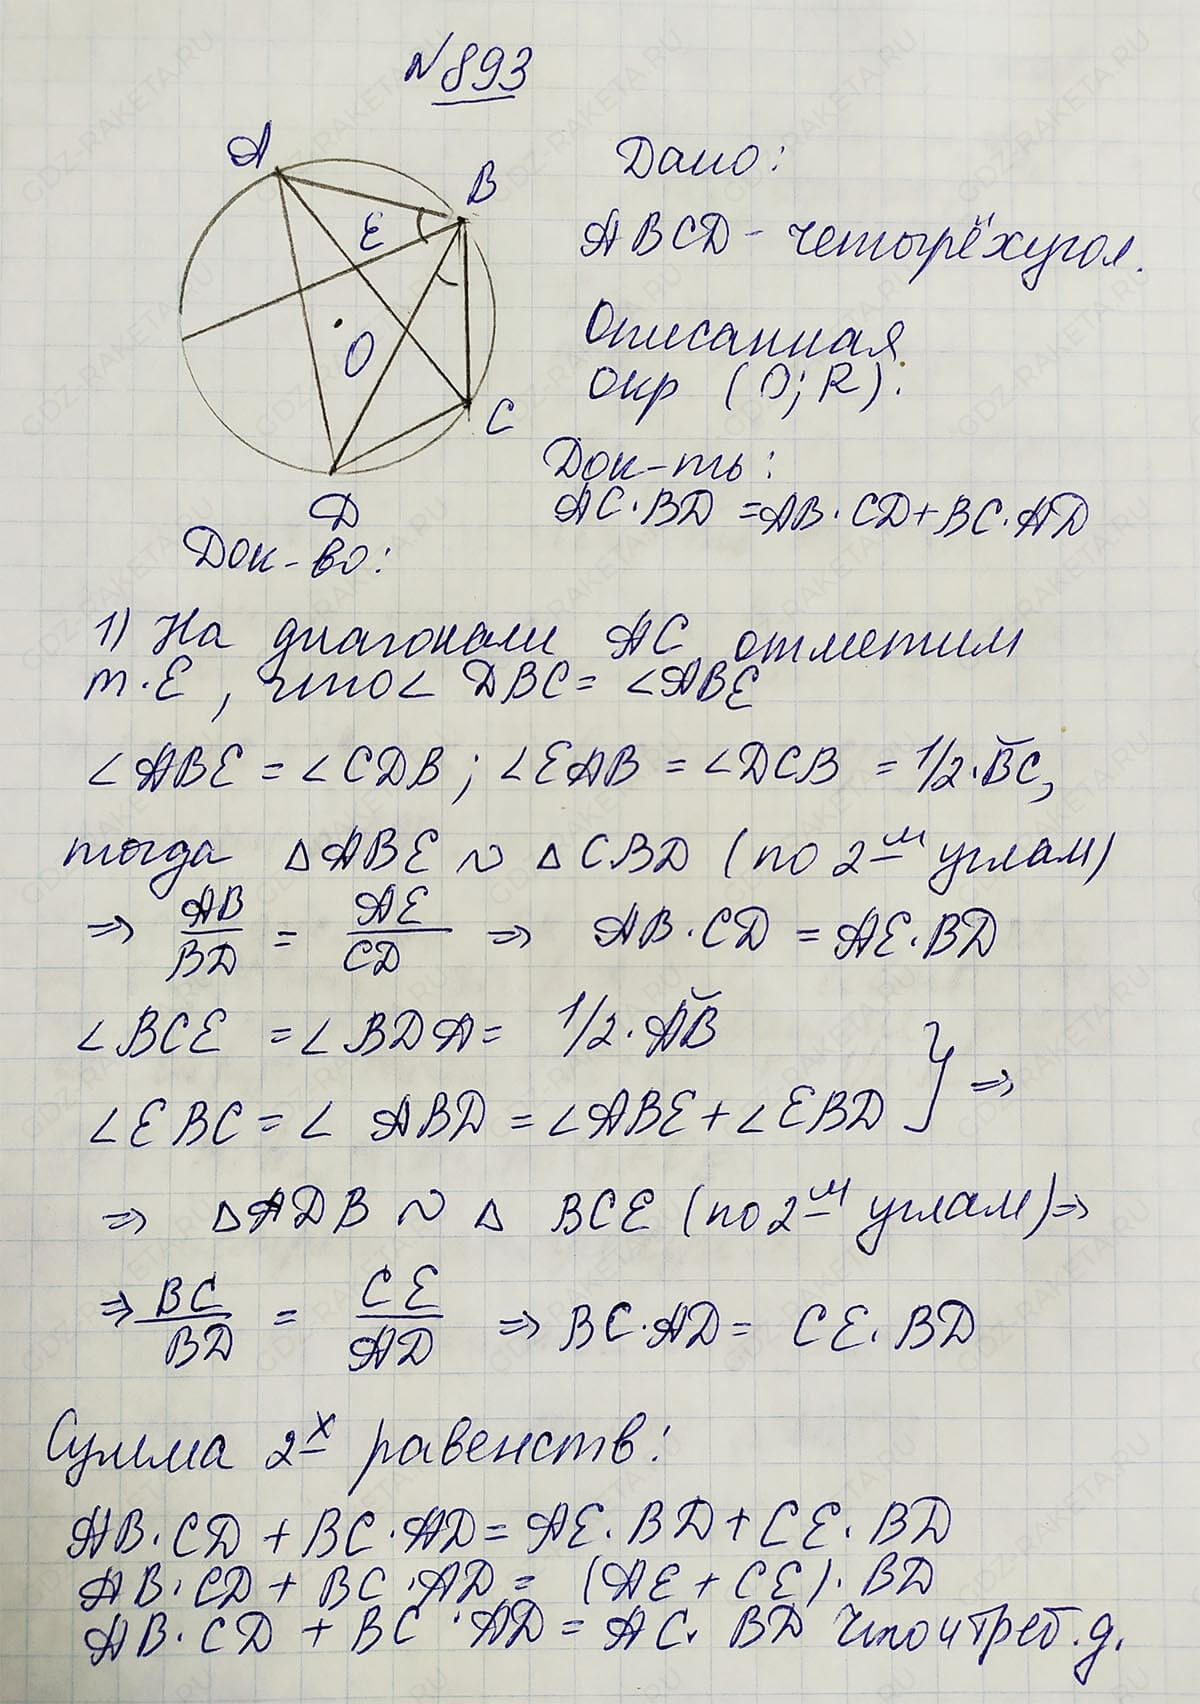 №893
A
B
E
O
C
D
Дано:
ABCD - четырёхугол.
Описанная
окр (O; R).
Док-ть:
AC·BD = AB·CD+BC·AD
Док-во:
1) На диагонали AC отметим
т.E, что∠DBC = ∠ABE
∠ABE = ∠CDB; ∠EAB = ∠DCB = 1/2·B̆C,
тогда △ABE ∾ △CBD (по 2м углам)
⇒ AB/BD = AE/CD ⇒ AB·CD = AE·BD
∠BCE = ∠BDA = 1/2·ĂB
∠EBC = ∠ABD = ∠ABE + ∠EBD } ⇒
⇒ △ADB ∾ △BCE (по 2м углам) ⇒
⇒ BC/BD = CE/AD ⇒ BC·AD = CE·BD
Сумма 2х равенств:
AB·CD + BC·AD = AE·BD + CE·BD
AB·CD + BC·AD = (AE + CE)·BD
AB·CD + BC·AD = AC·BD что и треб.д.
GDZ-RAKETA.RU